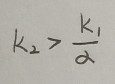 k₂ > k₁/α